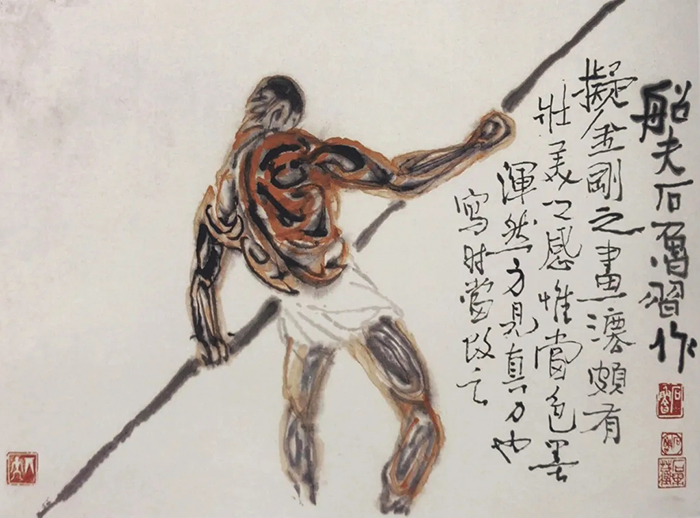 船夫石魯習作
擬金剛之畫灋頗有
壯美之感惟當色墨
渾然方見真力也
寫時當改之
石魯